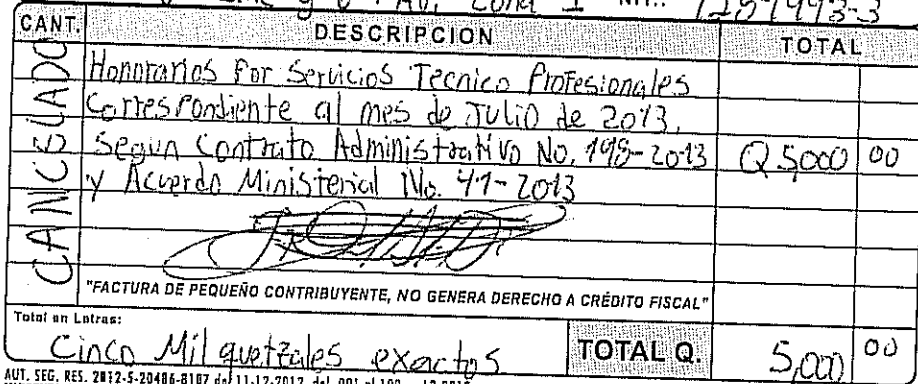 Av. Zona 1 NIT.: 7287993-3
CANT. DESCRIPCION TOTAL
CANCELADO
Honorarios Por Servicios Tecnico Profesionales
Correspondiente al mes de Julio de 2013,
Segun Contrato Administrativo No. 198-2013 Q 5,000 00
y Acuerdo Ministerial No. 41-2013
"FACTURA DE PEQUEÑO CONTRIBUYENTE, NO GENERA DERECHO A CRÉDITO FISCAL"
Total en Letras:
Cinco Mil quetzales exactos TOTAL Q. 5,000 00
AUT. SEG. RES. 2012-5-20486-8187 del 11-12-2012 del 001 al 100